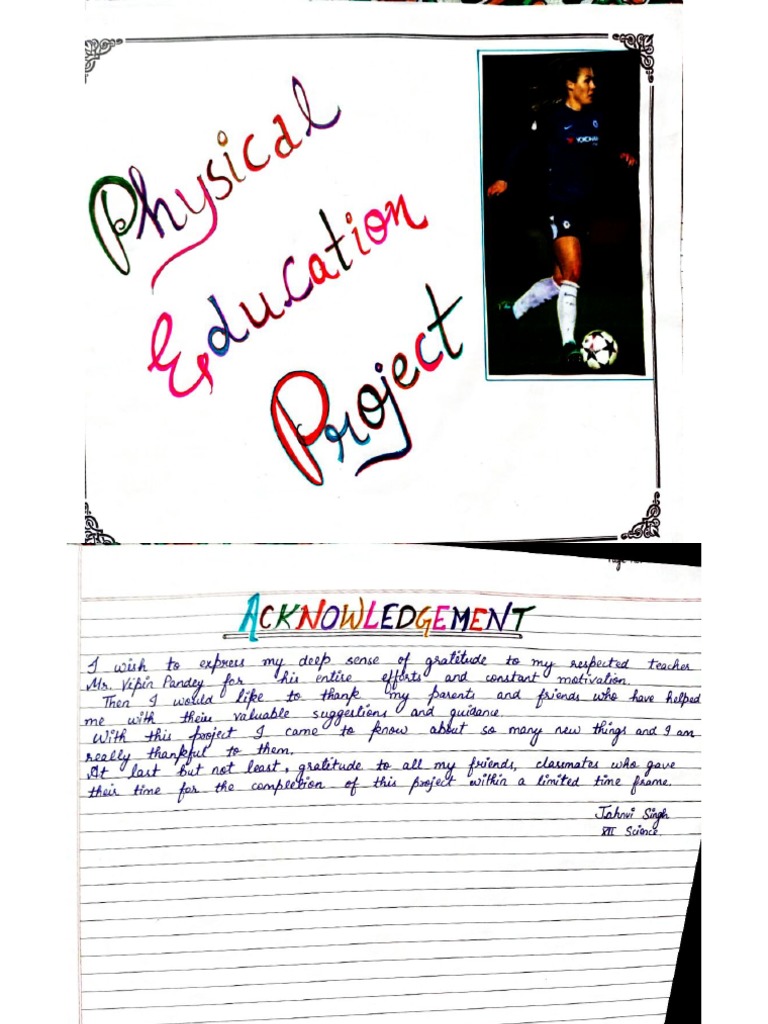 Physical
Education
Project
YOKOHAMA
ACKNOWLEDGEMENT
I wish to express my deep sense of gratitude to my respected teacher
Mr. Vipin Pandey for his entire efforts and constant motivation.
Then I would like to thank my parents and friends who have helped
me with their valuable suggestions and guidance.
With this project I came to know about so many new things and I am
really thankful to them.
At last but not least, gratitude to all my friends, classmates who gave
their time for the completion of this project within a limited time frame.
Jahnvi Singh
XII Science.